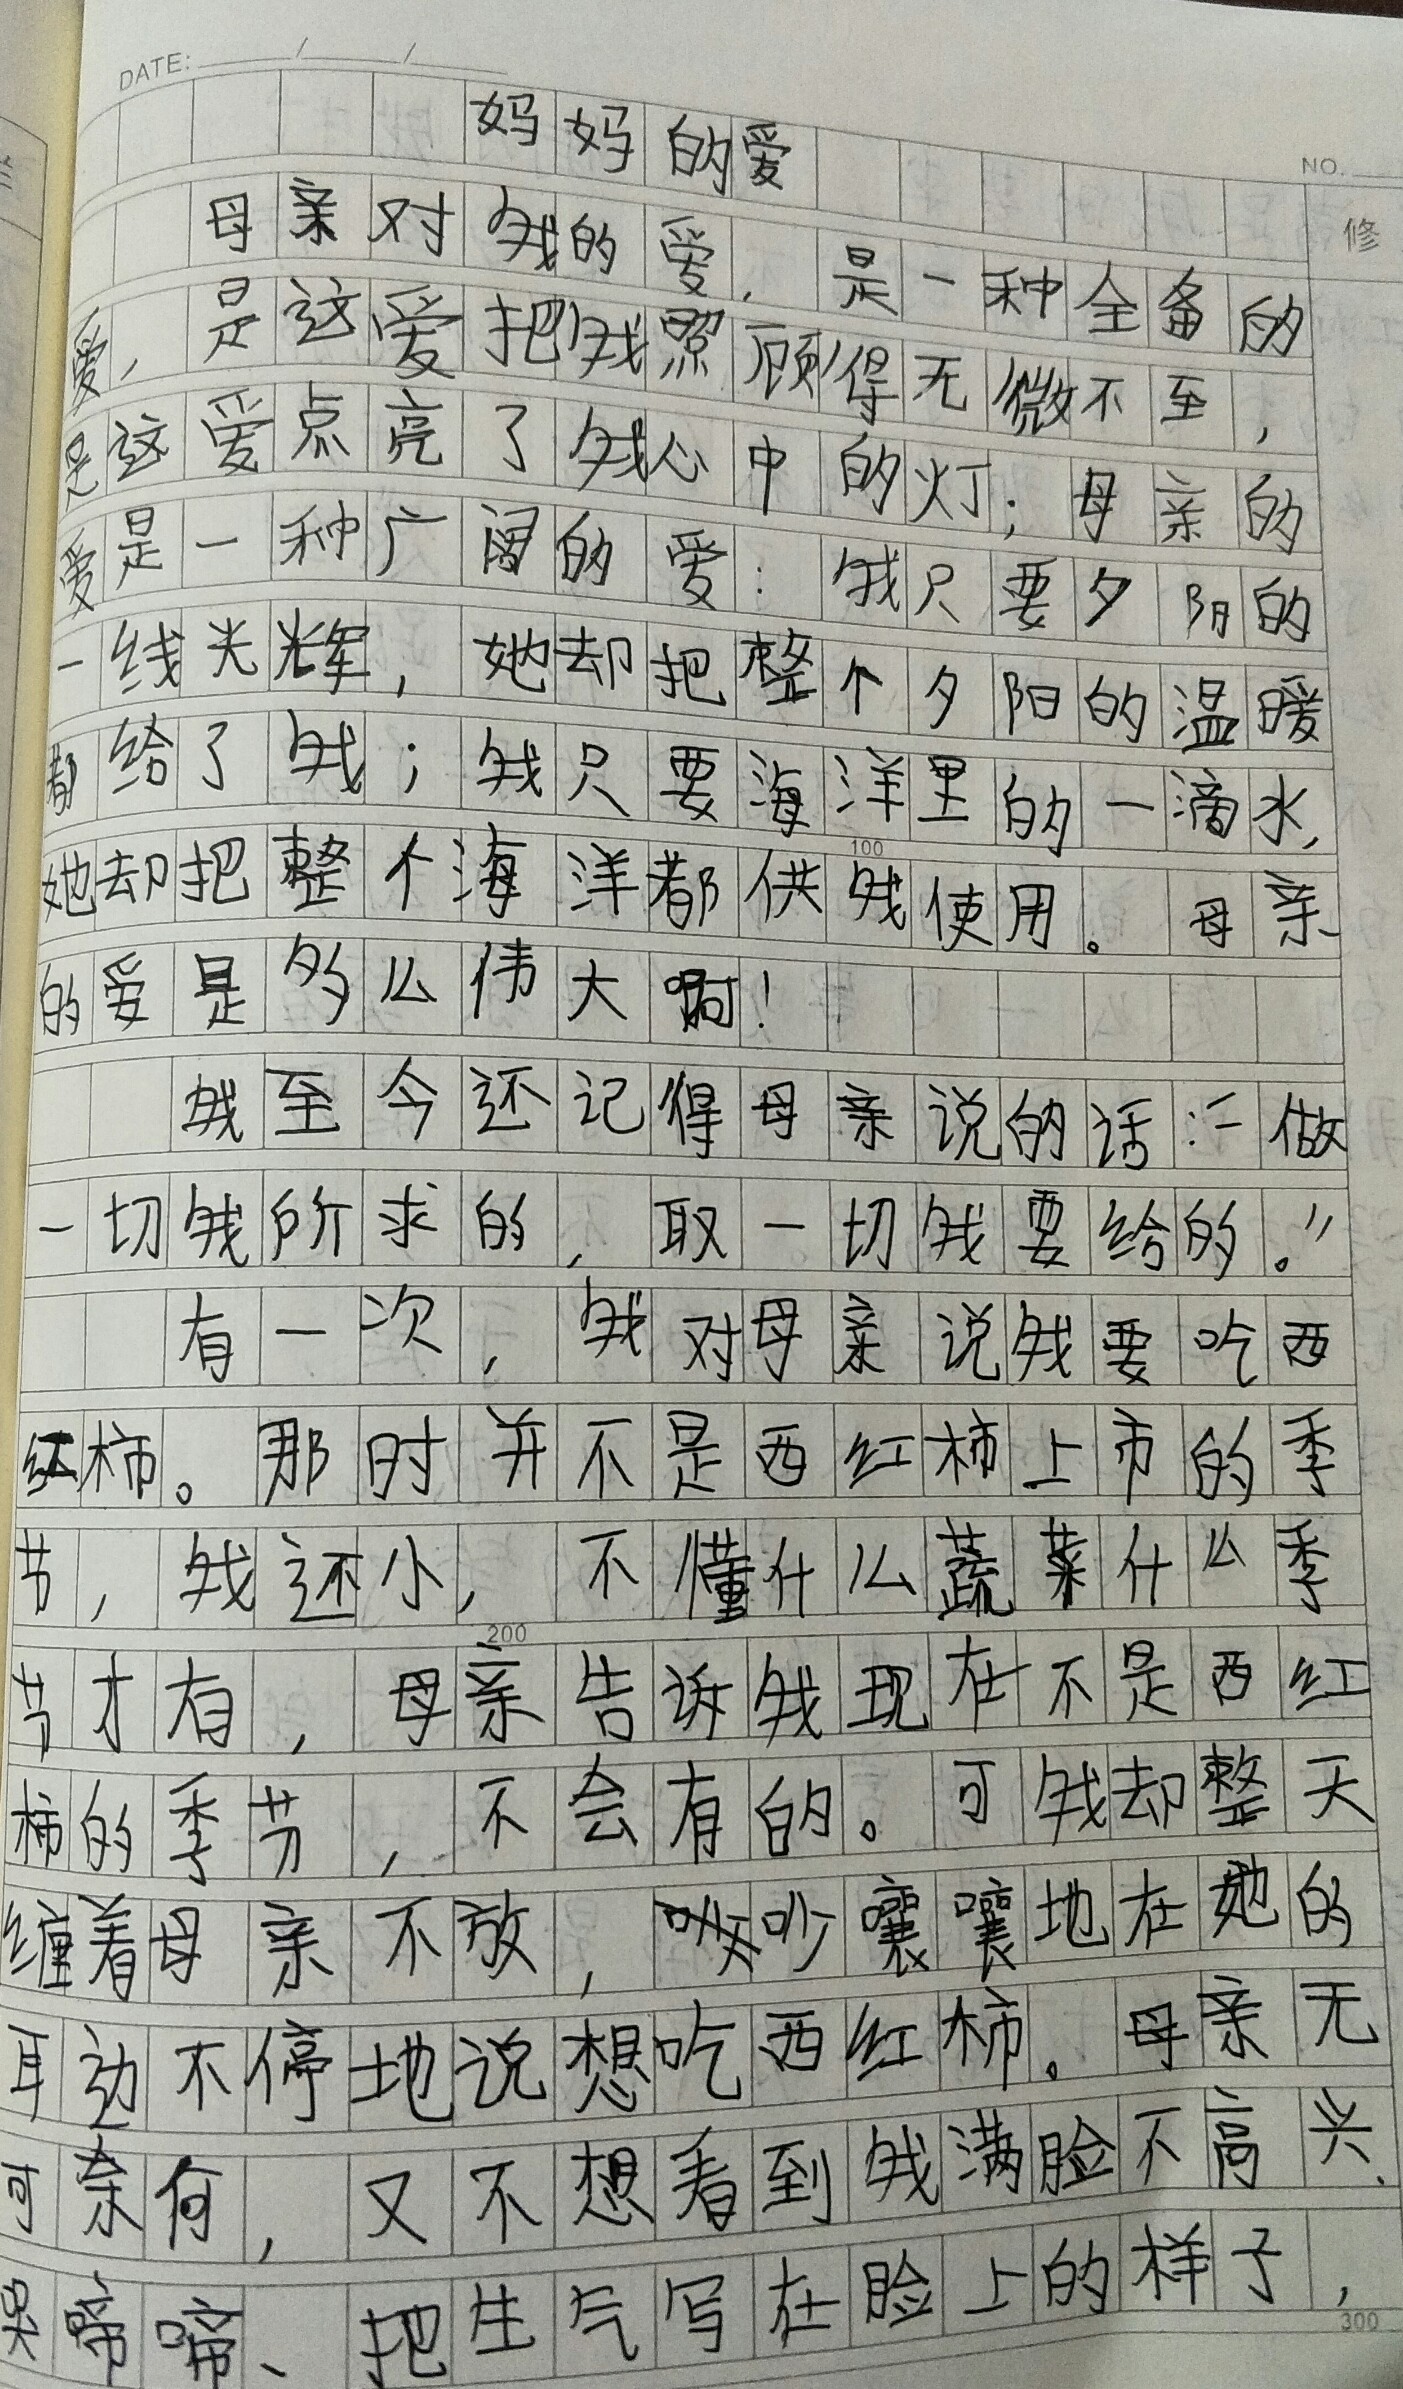 DATE: / /
NO.
修
妈妈的爱
母亲对我的爱，是一种全备的
爱，是这爱把我照顾得无微不至，
是这爱点亮了我心中的灯；母亲的
爱是一种广阔的爱：我只要夕阳的
一线光辉，她却把整个夕阳的温暖
都给了我；我只要海洋里的一滴水，
100
她却把整个海洋都供我使用。母亲
的爱是多么伟大啊！
我至今还记得母亲说的话：“做
一切我所求的，取一切我要给的。”
有一次，我对母亲说我要吃西
红柿。那时并不是西红柿上市的季
节，我还小，不懂什么蔬菜什么季
200
节才有，母亲告诉我现在不是西红
柿的季节，不会有的。可我却整天
缠着母亲不放，吵吵嚷嚷地在她的
耳边不停地说想吃西红柿。母亲无
可奈何，又不想看到我满脸不高兴、
哭啼啼、把生气写在脸上的样子，
300